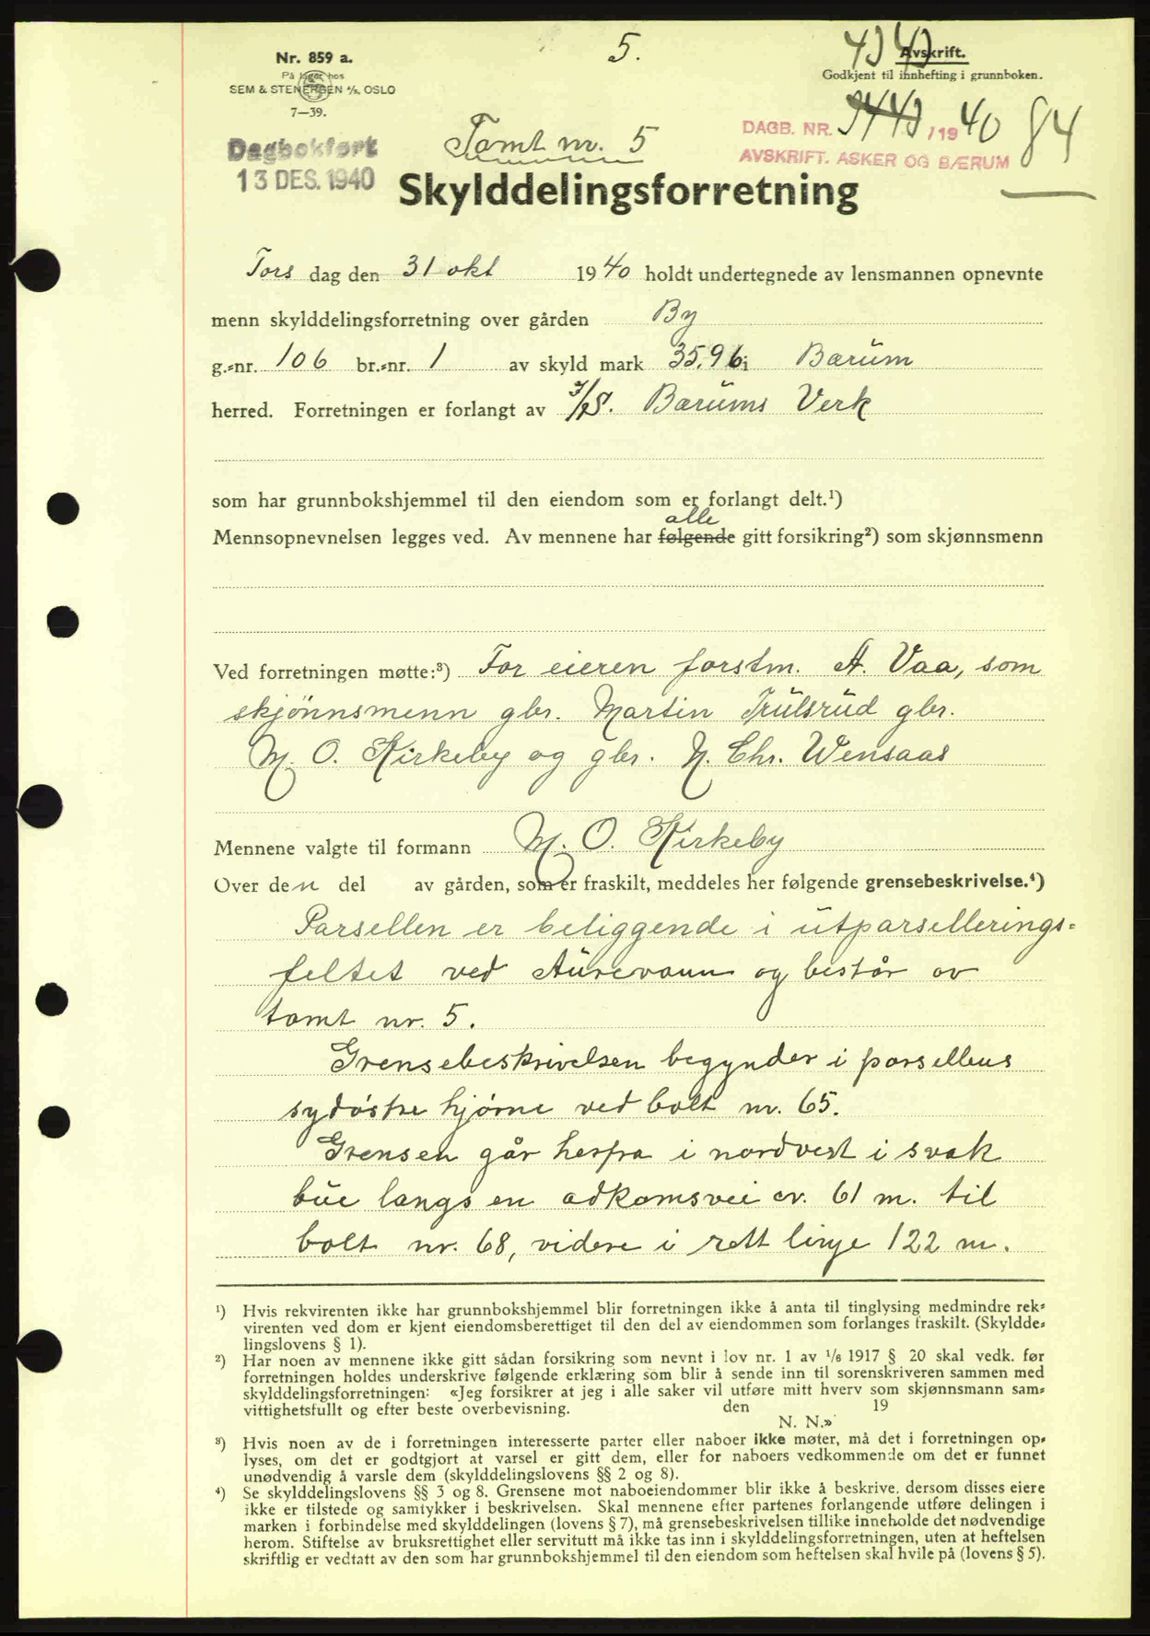 5.
Nr. 859 a.
På lager hos
SEM & STENERSEN A/S, OSLO
7—39.
Avskrift.
Godkjent til innhefting i grunnboken.
Dagbokført
13 DES. 1940
Tomt nr. 5
DAGB. NR. /1940
AVSKRIFT. ASKER OG BÆRUM
84
Skylddelingsforretning
Tors dag den 31 okt 1940 holdt undertegnede av lensmannen opnevnte
menn skylddelingsforretning over gården By
g.-nr. 106 br.-nr. 1 av skyld mark 35.96 i Bærum
herred. Forretningen er forlangt av A/S. Bærums Verk
som har grunnbokshjemmel til den eiendom som er forlangt delt.¹)
alle
Mennsopnevnelsen legges ved. Av mennene har følgende gitt forsikring²) som skjønnsmenn
Ved forretningen møtte:³) For eieren forstm. A. Vaa, som
skjønnsmenn gbr. Martin Trulsrud gbr.
M. O. Kirkeby og gbr. N. Chr. Wensaas
Mennene valgte til formann M. O. Kirkeby
Over den del av gården, som er fraskilt, meddeles her følgende grensebeskrivelse.⁴)
Parsellen er beliggende i utparsellerings-
feltet ved Aurevann og består av
tomt nr. 5.
Grensebeskrivelsen begynder i parsellens
sydøstre hjørne ved bolt nr. 65.
Grensen går herfra i nordvest i svak
bue langs en adkomsvei cr. 61 m. til
bolt nr. 68, videre i rett linje 122 m.
¹) Hvis rekvirenten ikke har grunnbokshjemmel blir forretningen ikke å anta til tinglysing medmindre rek-
virenten ved dom er kjent eiendomsberettiget til den del av eiendommen som forlanges fraskilt. (Skyldde-
lingslovens § 1).
²) Har noen av mennene ikke gitt sådan forsikring som nevnt i lov nr. 1 av 1/6 1917 § 20 skal vedk. før
forretningen holdes underskrive følgende erklæring som blir å sende inn til sorenskriveren sammen med
skylddelingsforretningen: «Jeg forsikrer at jeg i alle saker vil utføre mitt hverv som skjønnsmann sam-
vittighetsfullt og efter beste overbevisning. den 19
N. N.»
³) Hvis noen av de i forretningen interesserte parter eller naboer ikke møter, må det i forretningen op-
lyses, om det er godtgjort at varsel er gitt dem, eller for naboers vedkommende om det er funnet
unødvendig å varsle dem (skylddelingslovens §§ 2 og 8).
⁴) Se skylddelingslovens §§ 3 og 8. Grensene mot naboeiendommer blir ikke å beskrive, dersom disses eiere
ikke er tilstede og samtykker i beskrivelsen. Skal mennene efter partenes forlangende utføre delingen i
marken i forbindelse med skylddelingen (lovens § 7), må grensebeskrivelsen tillike inneholde det nødvendige
herom. Stiftelse av bruksrettighet eller servitutt må ikke tas inn i skylddelingsforretningen, uten at heftelsen
skriftlig er vedtatt av den som har grunnbokshjemmel til den eiendom som heftelsen skal hvile på (lovens § 5).